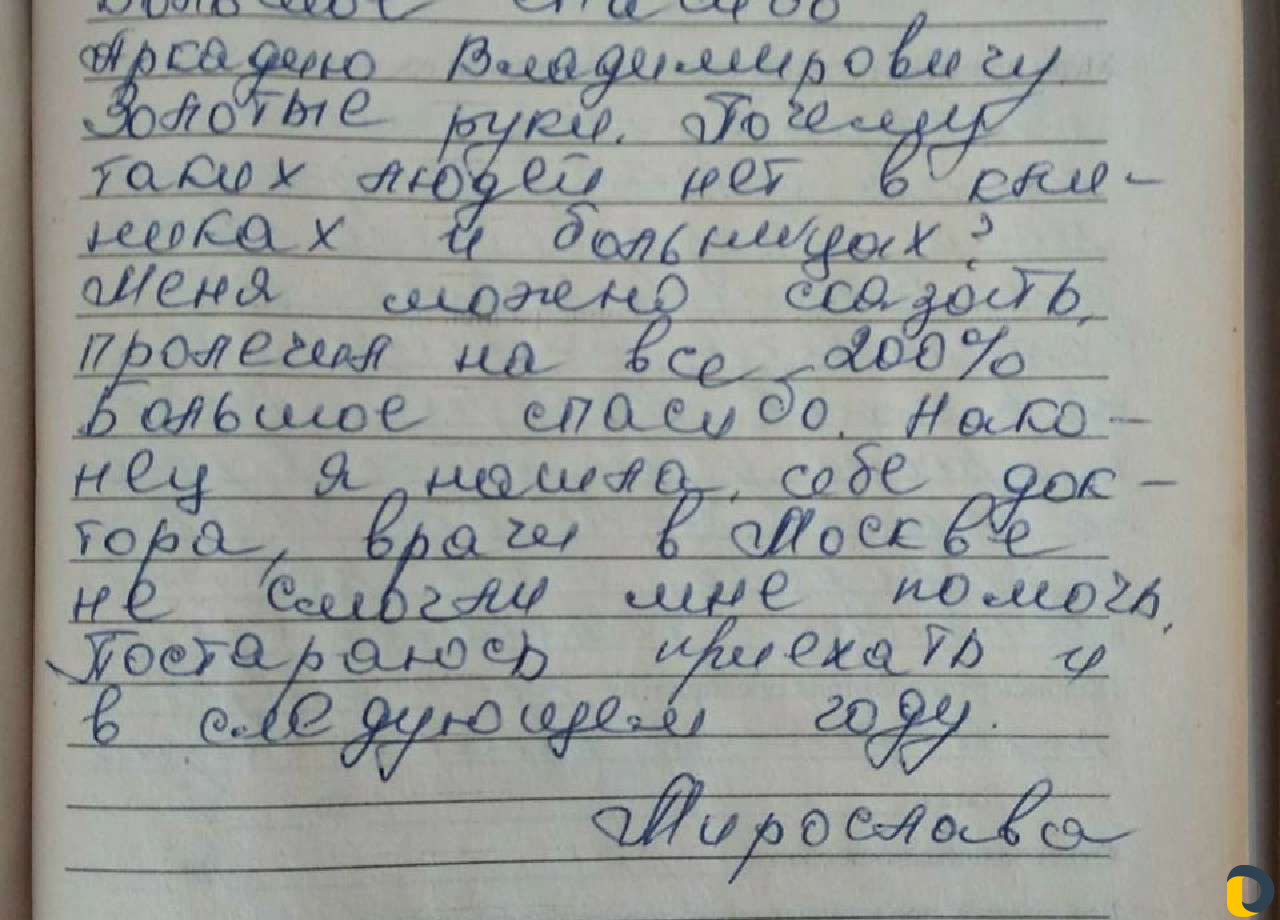 Большое спасибо
Аркадию Владимировичу
Золотые руки. Почему
таких людей нет в кли-
никах и больницах?
Меня можно сказать,
пролечил на все 200%
Большое спасибо. Нако-
нец я нашла себе док-
тора, врачи в Москве
не смогли мне помочь.
Постараюсь приехать и
в следующем году.
Мирослава